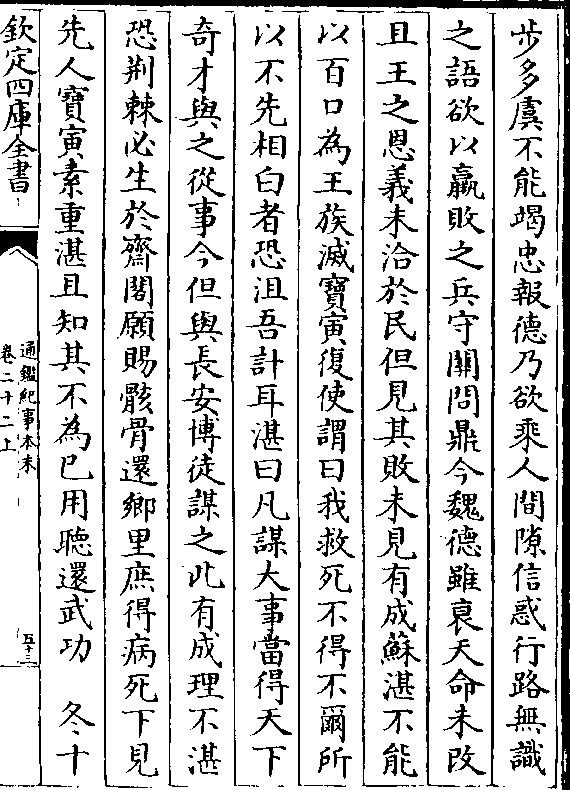 步多虞不能竭忠報德乃欲乘人間隙信惑行路無識
之語欲以羸敗之兵守關問鼎今魏德雖衰天命未改
且王之恩義未洽於民但見其敗未見有成蘇湛不能
以百口為王族滅寳寅復使謂曰我救死不得不爾所
以不先相白者恐沮吾計耳湛曰凡謀大事當得天下
奇才與之從事今但與長安博徒謀之此有成理不湛
恐荆棘必生於齋閤願賜骸骨還鄉里庶得病死下見
先人寳寅素重湛且知其不為已用聽還武功　冬十
欽定四庫全書
通鑑紀事本末
卷二十二上
五十三